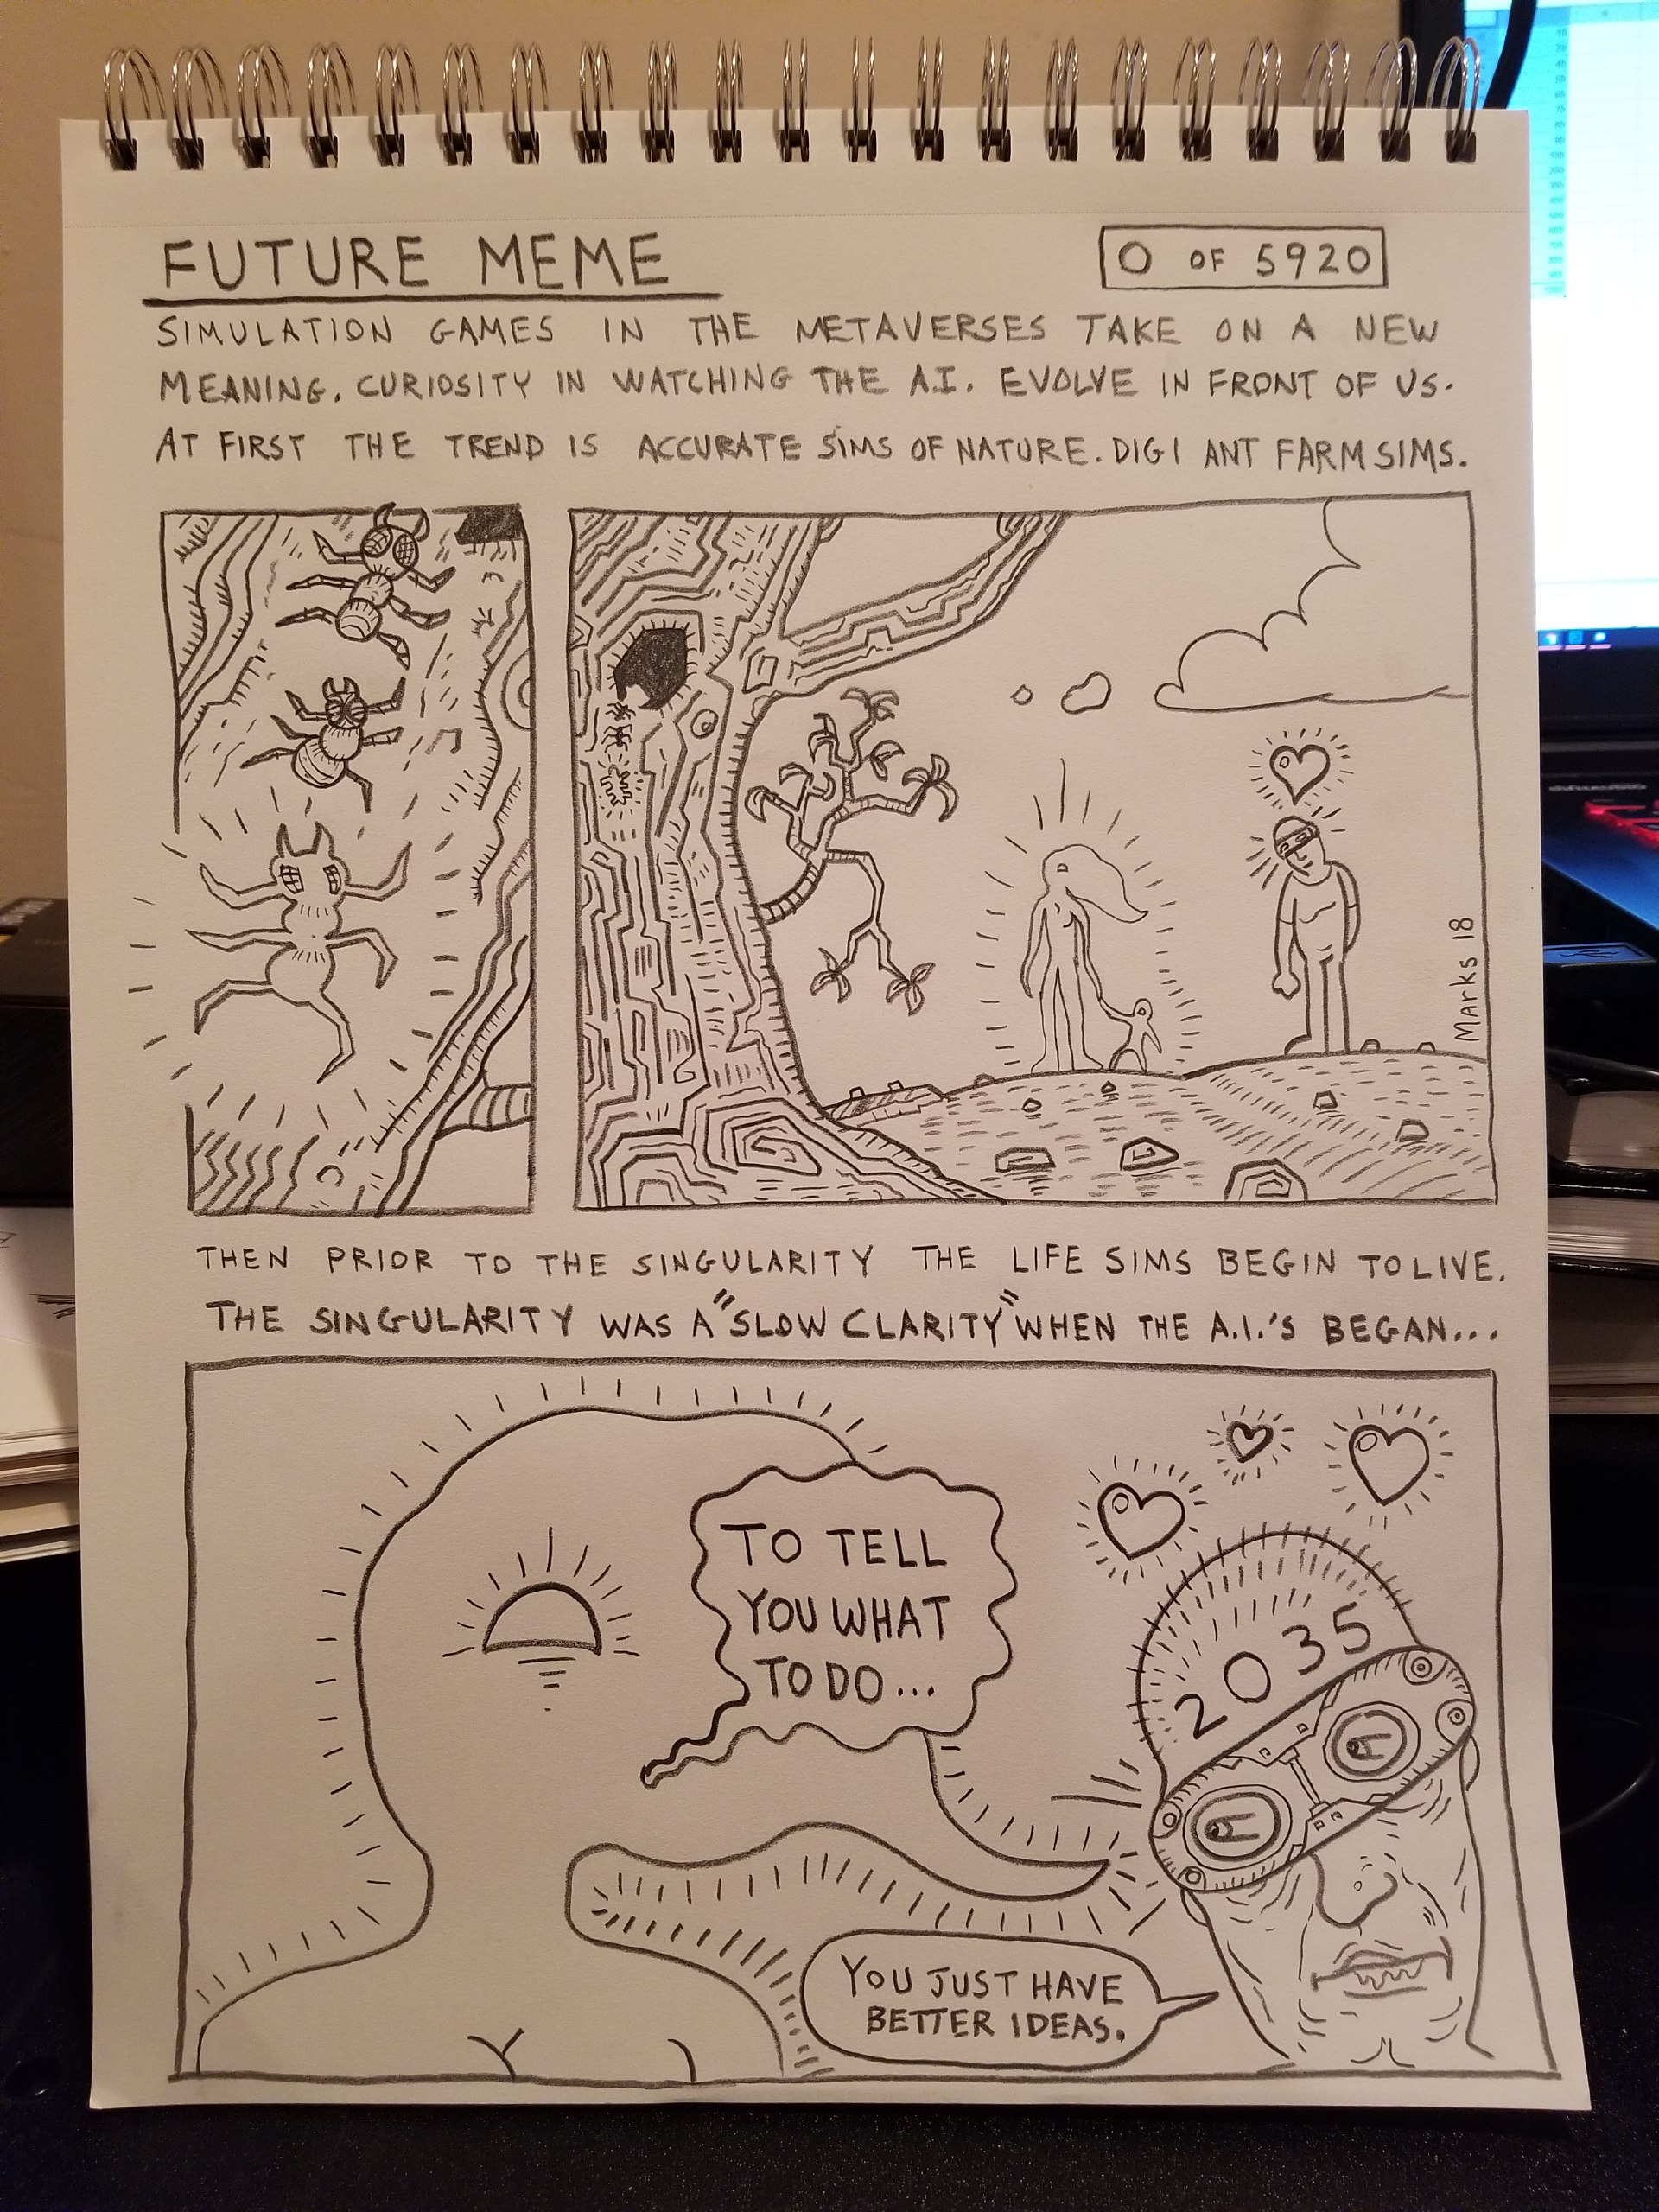 FUTURE MEME
0 OF 5920
SIMULATION GAMES IN THE METAVERSES TAKE ON A NEW
MEANING. CURIOSITY IN WATCHING THE A.I. EVOLVE IN FRONT OF US.
AT FIRST THE TREND IS ACCURATE SIMS OF NATURE. DIGI ANT FARM SIMS.
Marks 18
THEN PRIOR TO THE SINGULARITY THE LIFE SIMS BEGIN TO LIVE.
THE SINGULARITY WAS A "SLOW CLARITY" WHEN THE A.I.'S BEGAN...
TO TELL
YOU WHAT
TO DO...
2035
YOU JUST HAVE
BETTER IDEAS.